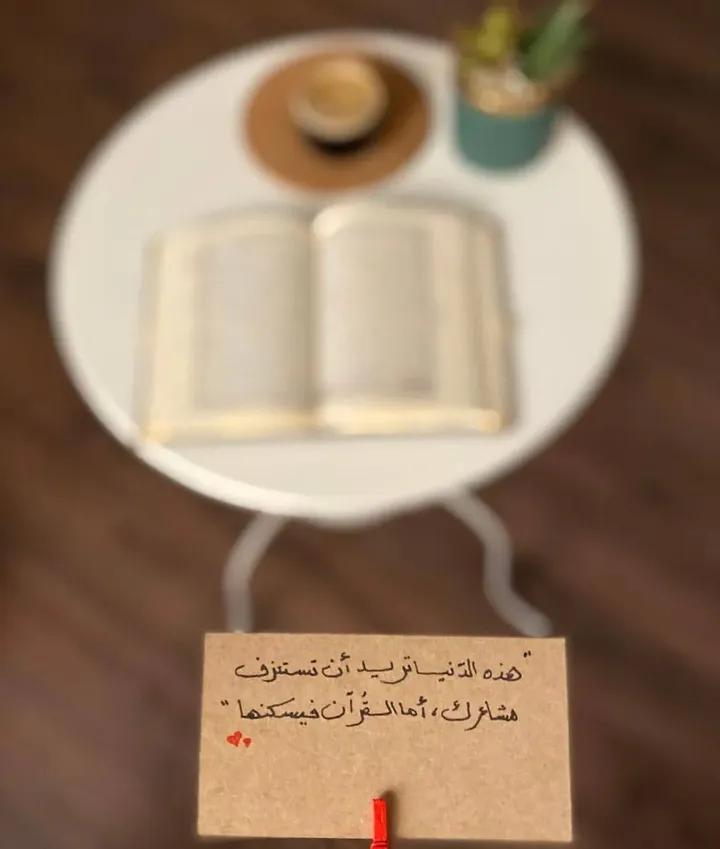 "هذه الدّنيا تريد أن تستنزف
مشاعرك، أما القُرآن فيسكنها"